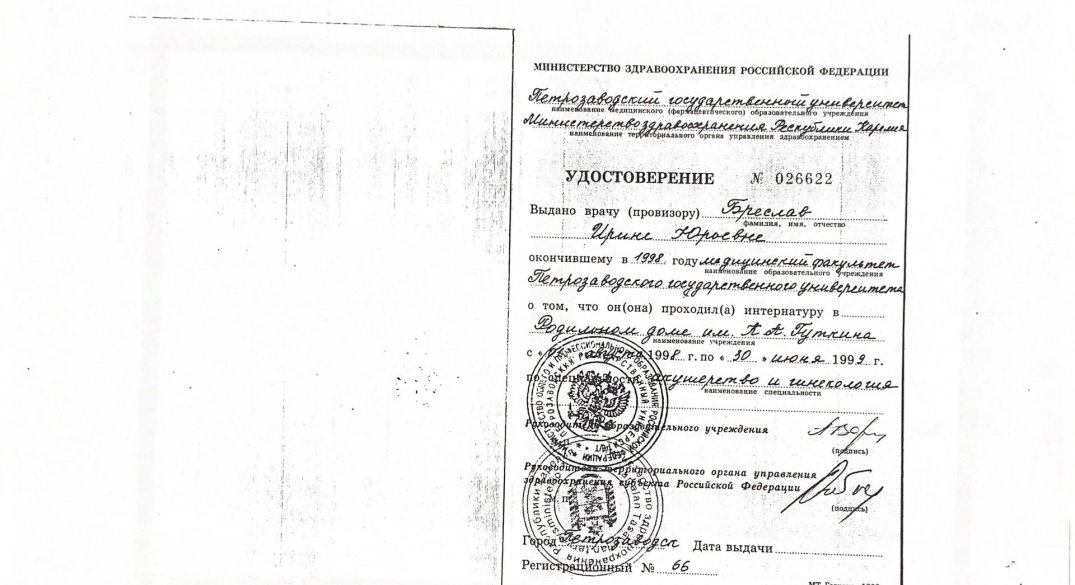 МИНИСТЕРСТВО ЗДРАВООХРАНЕНИЯ РОССИЙСКОЙ ФЕДЕРАЦИИ
Петрозаводский государственный университет
наименование медицинского (фармацевтического) образовательного учреждения
Министерство здравоохранения Республики Карелия
наименование территориального органа управления здравоохранением
УДОСТОВЕРЕНИЕ № 026622
Выдано врачу (провизору) Бреслав
фамилия, имя, отчество
Ирине Юрьевне
окончившему в 1998 году медицинский факультет
наименование образовательного учреждения
Петрозаводского государственного университета
о том, что он(она) проходил(а) интернатуру в
Родильном доме им. К А Гуткина
наименование учреждения
с « августа 1998 г. по « 30 » июня 1999 г.
по специальности акушерство и гинекология
наименование специальности
Руководитель образовательного учреждения
(подпись)
Руководитель территориального органа управления
здравоохранения субъекта Российской Федерации
(подпись)
М. П.
Город Петрозаводск Дата выдачи
Регистрационный № 66